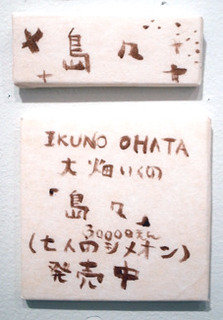 島々
IKUNO OHATA
大畑いくの
「島々」
30000えん
(七人のシメオン)
発売中